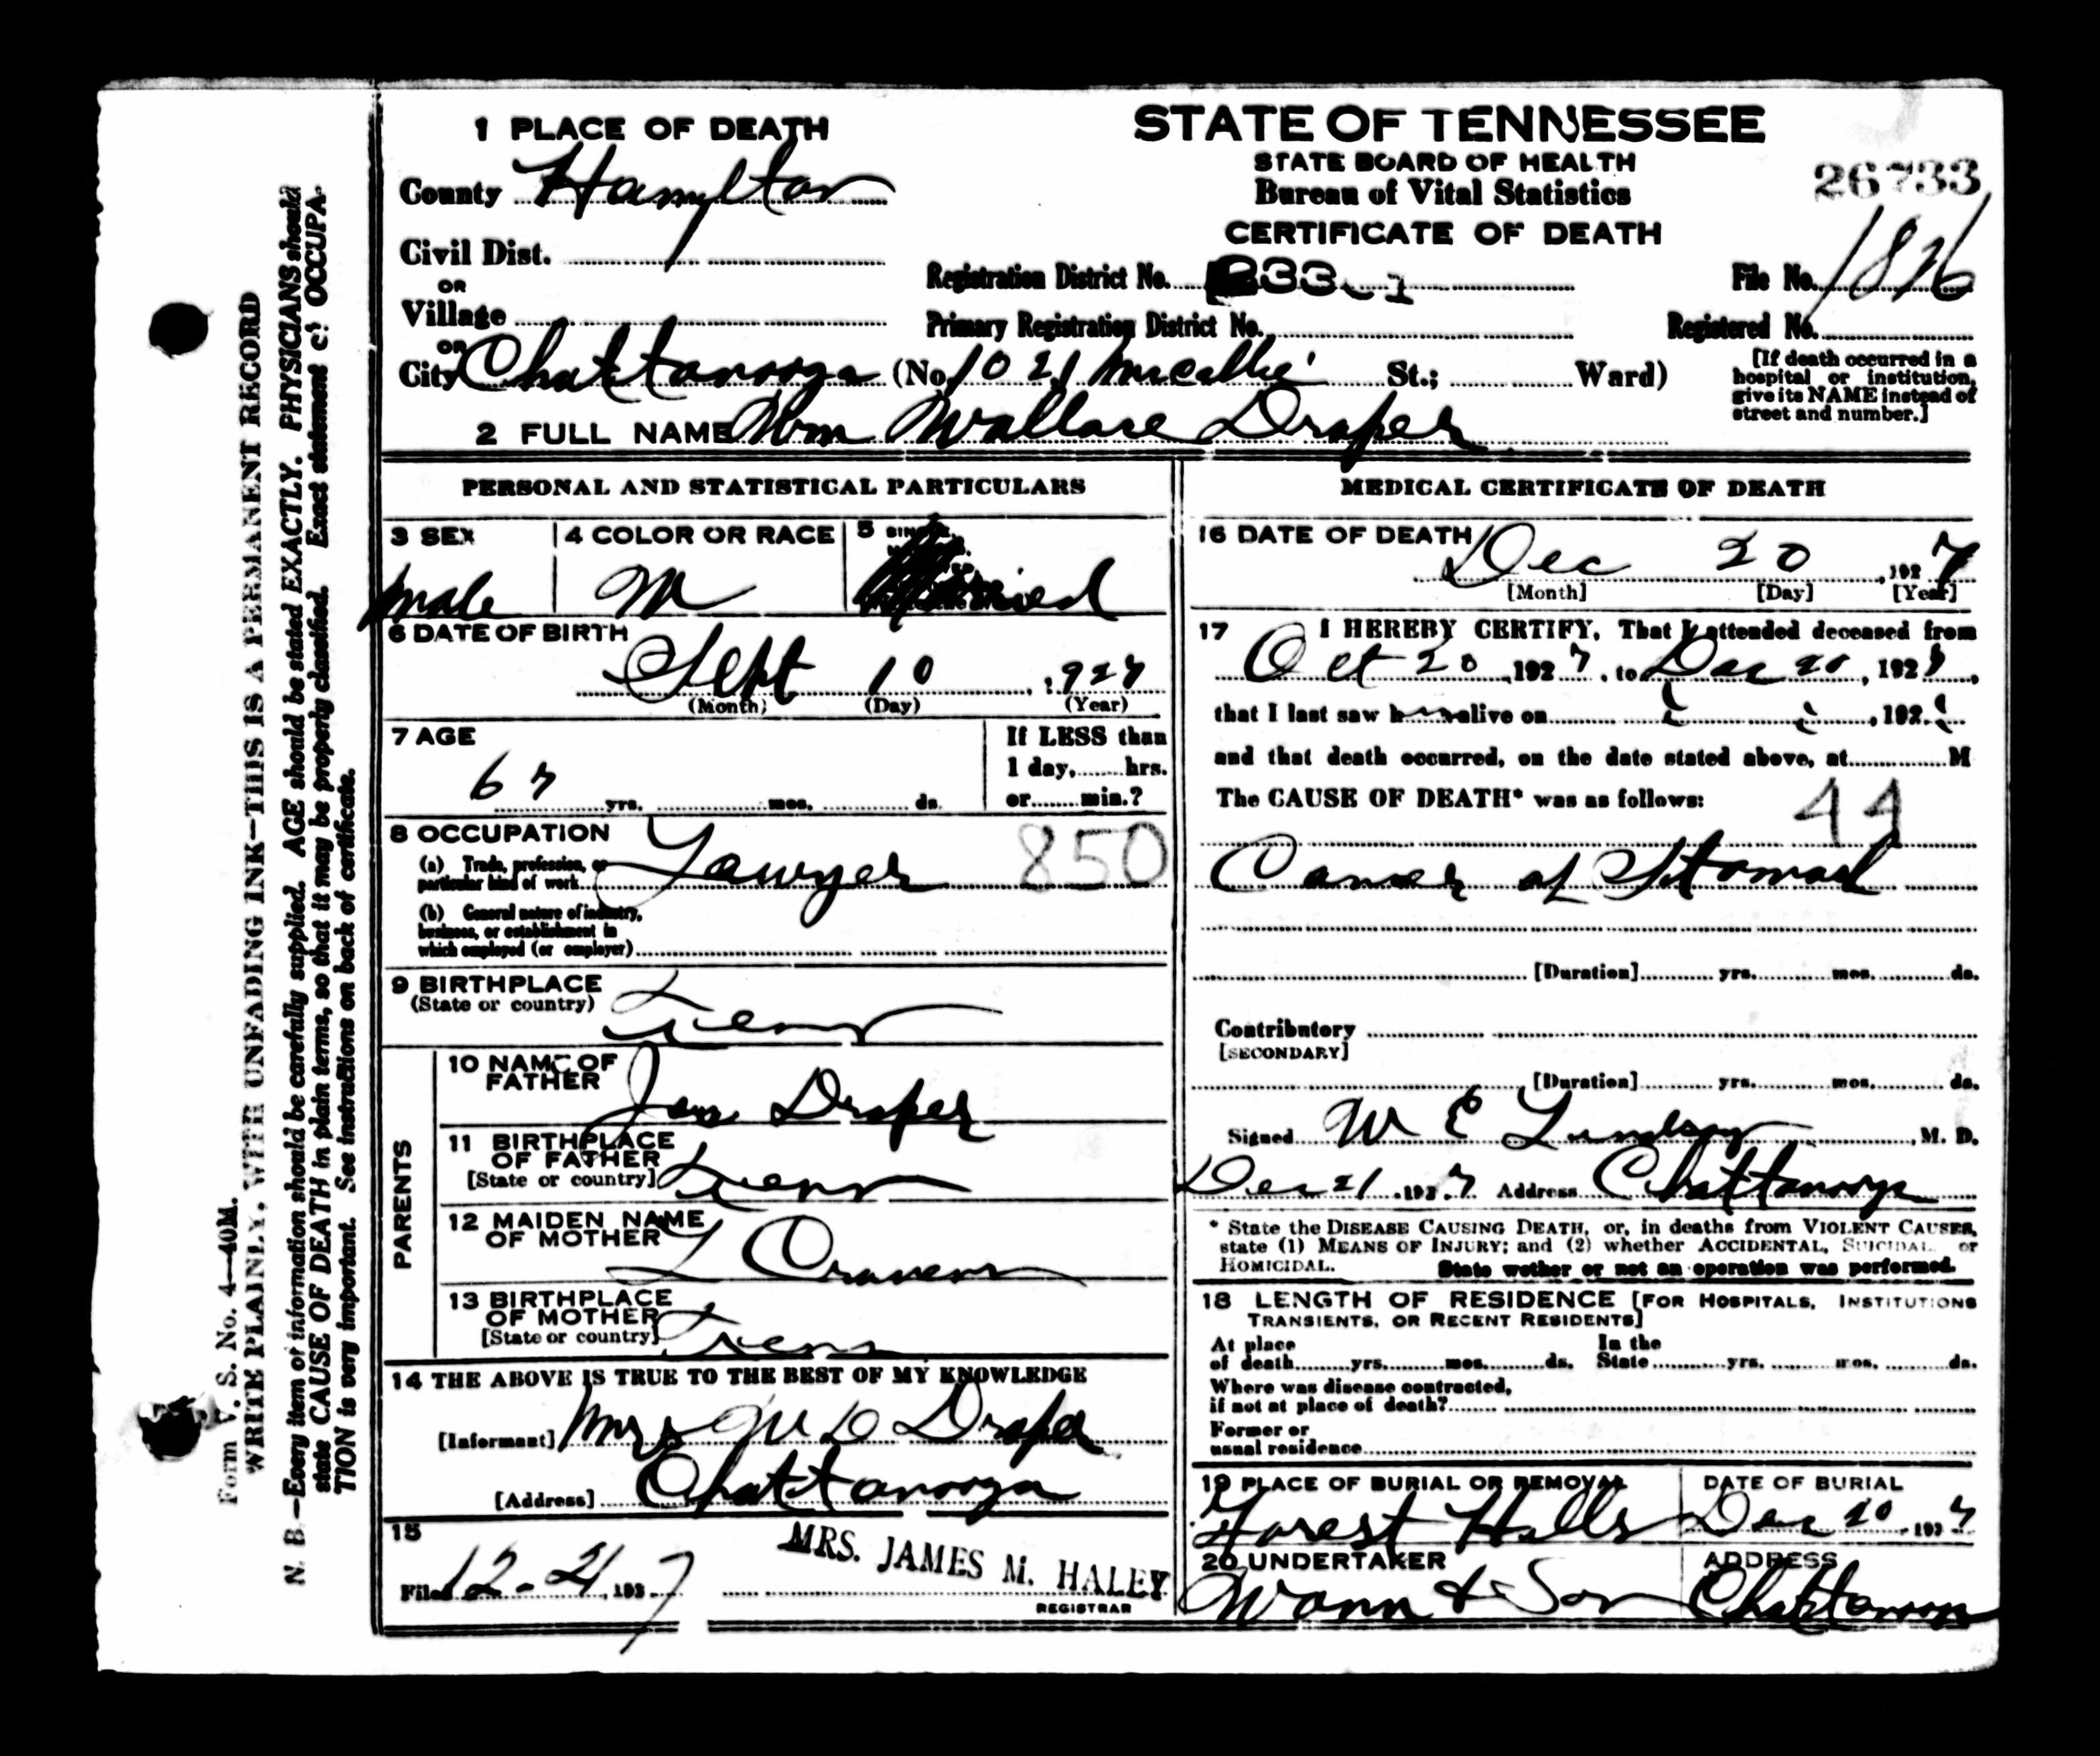 1 PLACE OF DEATH
County Hamilton
Civil Dist.
OR
Village
OR
City Chattanooga (No. 1021 McCallie St.; Ward)
STATE OF TENNESSEE
STATE BOARD OF HEALTH
Bureau of Vital Statistics
CERTIFICATE OF DEATH
26733
Registration District No. 33 1
File No. 1826
Primary Registration District No.
Registered No.
[If death occurred in a
hospital or institution,
give its NAME instead of
street and number.]
2 FULL NAME Wm Wallace Draper
PERSONAL AND STATISTICAL PARTICULARS
3 SEX
male
4 COLOR OR RACE
5
Married
6 DATE OF BIRTH
Sept 10, 1927
(Month) (Day) (Year)
7 AGE
67 yrs. mos. ds.
If LESS than
1 day, hrs.
or min.?
8 OCCUPATION
(a) Trade, profession, or
particular kind of work Lawyer 850
(b) General nature of industry,
business, or establishment in
which employed (or employer)
9 BIRTHPLACE
(State or country) Tenn
PARENTS
10 NAME OF
FATHER Jas Draper
11 BIRTHPLACE
OF FATHER
[State or country] Tenn
12 MAIDEN NAME
OF MOTHER L Cravens
13 BIRTHPLACE
OF MOTHER
[State or country] Tenn
14 THE ABOVE IS TRUE TO THE BEST OF MY KNOWLEDGE
[Informant] Mrs W D Draper
[Address] Chattanooga
15
Filed 12-21, 1927
MRS. JAMES M. HALEY
REGISTRAR
MEDICAL CERTIFICATE OF DEATH
16 DATE OF DEATH
Dec 20, 1927
[Month] [Day] [Year]
17 I HEREBY CERTIFY, That I attended deceased from
Oct 20, 1927, to Dec 20, 1927,
that I last saw him alive on , 192
and that death occurred, on the date stated above, at M
The CAUSE OF DEATH* was as follows:
44
Cancer of Stomach
[Duration] yrs. mos. ds.
Contributory
[SECONDARY]
[Duration] yrs. mos. ds.
Signed W E Lindsay, M. D.
Dec 21, 1927 Address Chattanooga
* State the DISEASE CAUSING DEATH, or, in deaths from VIOLENT CAUSES,
state (1) MEANS OF INJURY; and (2) whether ACCIDENTAL, SUICIDAL or
HOMICIDAL. State wether or not an operation was performed.
18 LENGTH OF RESIDENCE [FOR HOSPITALS, INSTITUTIONS
TRANSIENTS, OR RECENT RESIDENTS]
At place In the
of death yrs. mos. ds. State yrs. mos. ds.
Where was disease contracted,
if not at place of death?
Former or
usual residence
19 PLACE OF BURIAL OR REMOVAL
Forest Hills
DATE OF BURIAL
Dec 20, 1927
20 UNDERTAKER
Wann & Son
ADDRESS
Chattanooga
Form V. S. No. 4—40M.
WRITE PLAINLY, WITH UNFADING INK—THIS IS A PERMANENT RECORD
N. B.—Every item of information should be carefully supplied. AGE should be stated EXACTLY. PHYSICIANS should
state CAUSE OF DEATH in plain terms, so that it may be properly classified. Exact statement of OCCUPA-
TION is very important. See instructions on back of certificate.